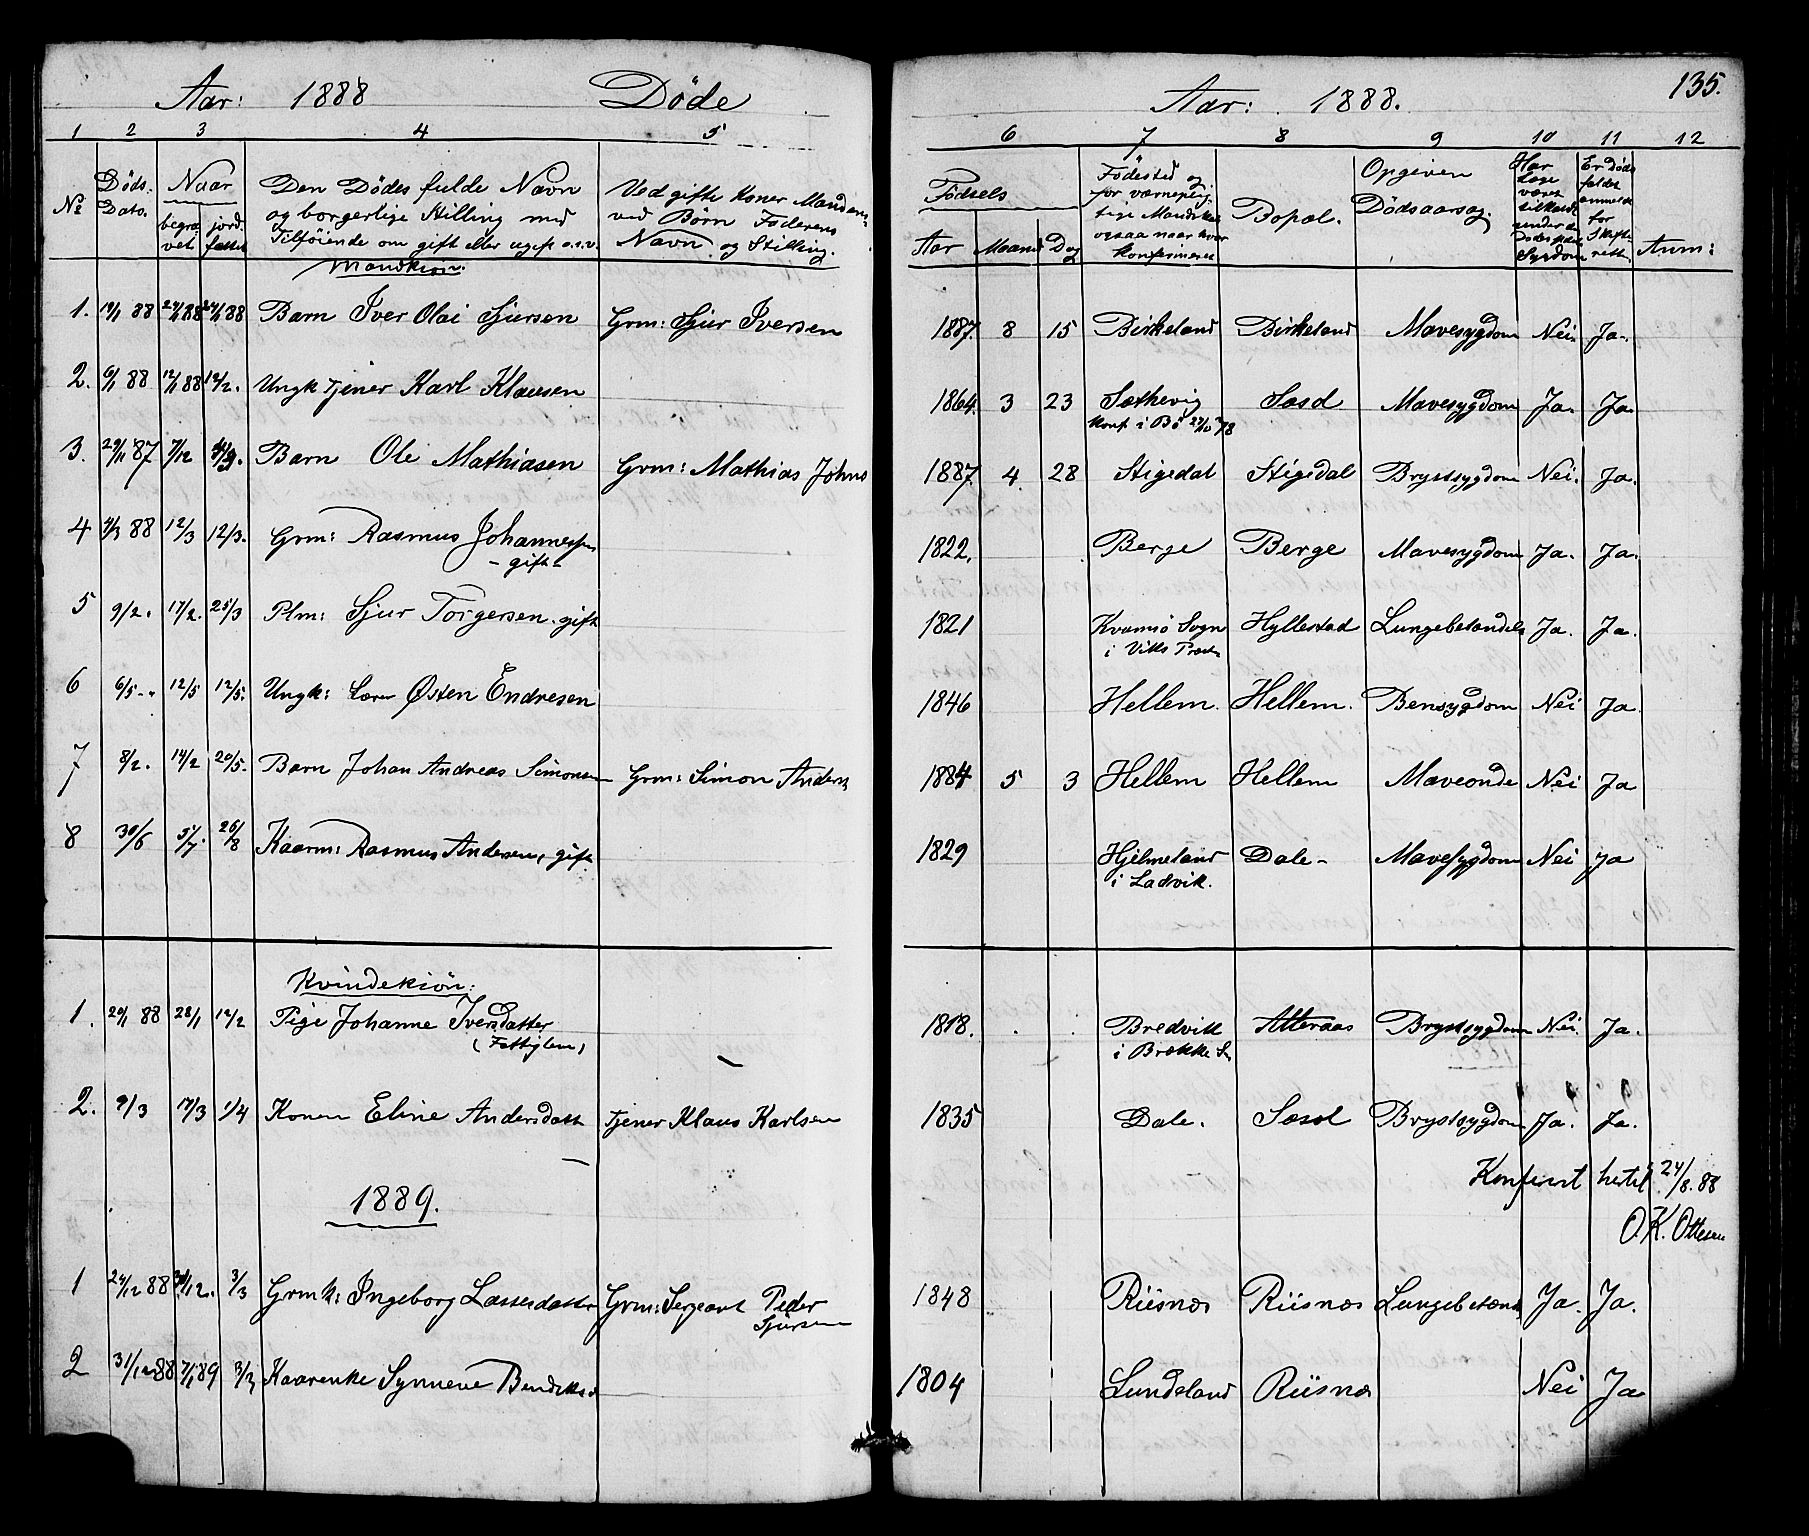 Aar: 1888 Døde
1 2 3 4 5
№ Døds- Dato. Naar begra- vet. jord- fæstet Den Dødes fulde Navn og borgerlige Stilling med Tilføiende om gift eller ugift o.s.v. Ved gifte Koner Mandens, ved Børn Faderens Navn og Stilling.
Mandkiøn.
1. 88 88 88 Barn Iver Olai Sjursen Grm: Sjur Iversen
2. 6/1 88 12/1 88 12/2. Ungk Tjener Karl Klausen
3. 29/11 87 7/12 Barn Ole Mathiasen Grm: Mathias Johns
4 88 12/3 12/3. Grm: Rasmus Johannessen
- gift -
5 9/2. 17/2. 25/3 Plm: Sjur Torgersen. gift
6 6/5 - " 12/5 12/5. Ungk: Lærer Østen Endresen
7 8/2. 14/2 20/5. Barn Johan Andreas Simonsen Grm: Simon Anders
8 30/6 5/7. 26/8 Kaarm: Rasmus Andersen, gift
Kvindekiøn:
1. 88 28/1 12/2 Pige Johanne Iversdatter
(Fattiglem)
2. 9/3 17/3 1/4 Konen Eline Andersdatt Tjener Klaus Karlsen
1889.
1 24/12 88 31/12. 3/3 Grmk: Ingeborg Lassesdatter Grm: Sergeant Peder
Sjursen
2 31/12 88 7/1 89 3/3 Kaarenke Synneve Bendiksd
135.
Aar: 1888.
6 7 8 9 10 11 12
Fødsels Aar Maaned Dag Fødested og for værneplig- tige Mandskab ogsaa naar hvor konfirmeret Bopæl. Opgiven Dødsaarsag. Har Læge været tilkaldt under den Dødes sidste Sygdom Er Døds- faldet anmeldt for Skifte- retten Anm:
1887. 8 15 Birkeland Birkeland Mavesygdom Nei. Ja.
1864. 3 23 Sæthevig Sæsd Mavesygdom Ja. Ja.
konf i Bø 78
1887 4. 28 Stigedal Stigedal Brystsygdom Nei. Ja.
1822. Berge Berge Mavesygdom Ja. Ja.
1821 Kvamsø Sogn Hyllestad Lungebetændels Ja. Ja.
i Viks Præst
1846 Hellem. Hellem. Bensygdom Nei Ja
1884 5 3 Hellem Hellem Maveonde Nei Ja
1829 Hjelmeland Dale- Mavesygdom Nei Ja
i Ladvik.
1818. Bredvik Atteraas Brystsygdom Nei. Ja.
i Brække S
1835 Dale. Brystsygdom Ja. Ja.
Konferert hertil 24/8. 88
O. K. Ottesen
1848 Riisnæs Riisnæs Lungebetænd Ja. Ja.
1804 Lundeland Riisnæs Nei Ja